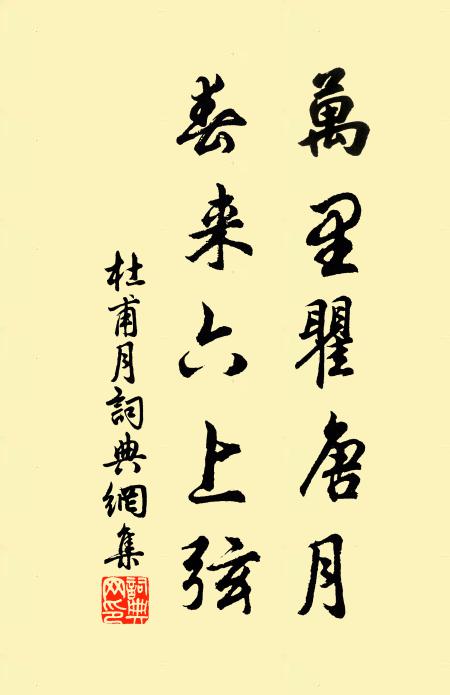 萬里瞿唐月
春来六上弦
杜甫月詞典網集
詞典网印